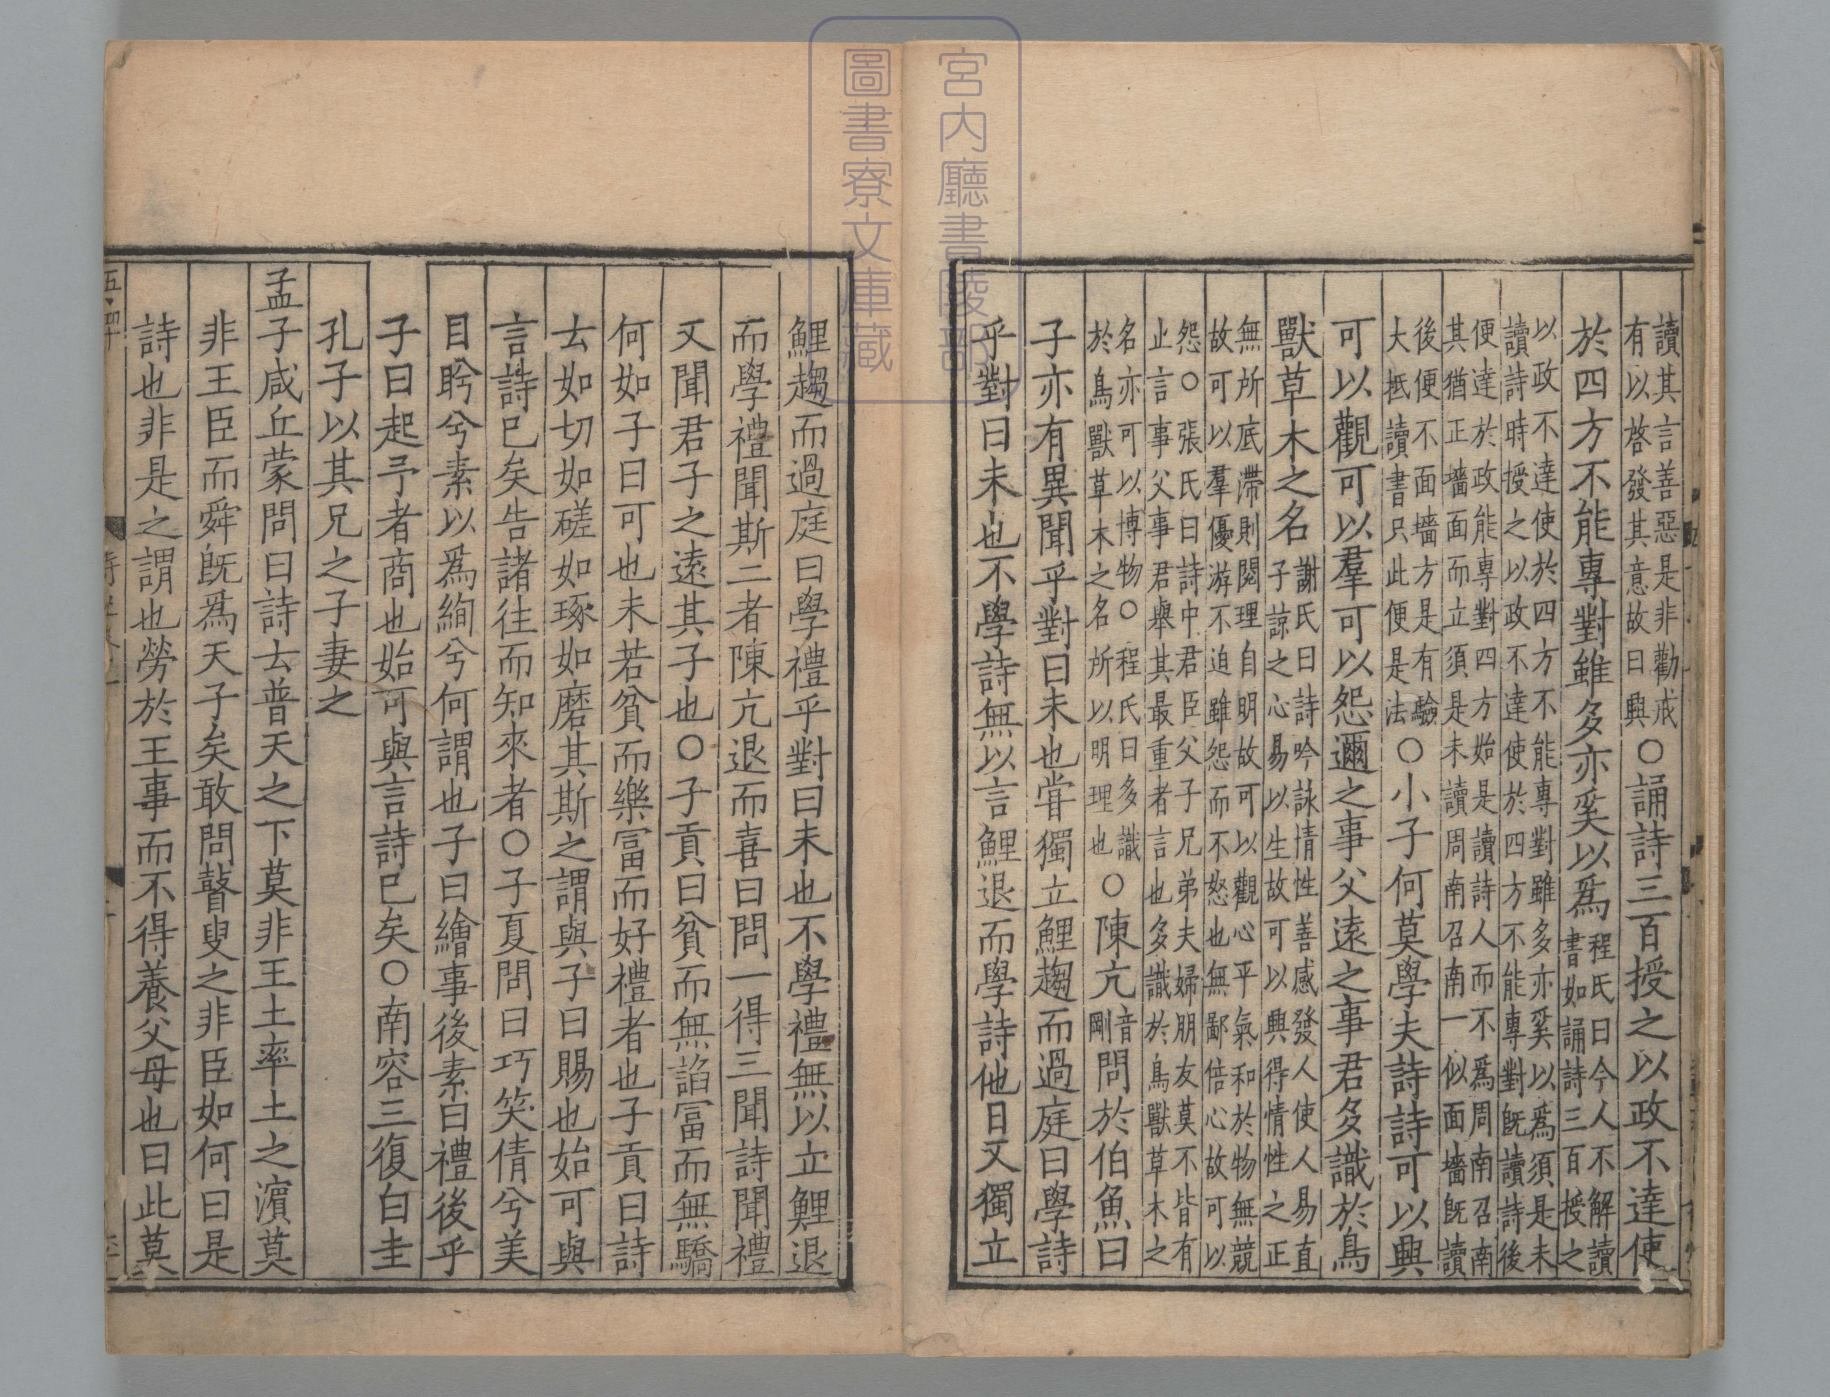 讀其言善惡是非勸戒
有以啓發其意故曰興
○誦詩三百授之以政不達使
於四方不能專對雖多亦奚以爲
程氏曰今人不解讀
書如誦詩三百授之
以政不達使於四方不能專對雖多亦奚以爲須是未
讀詩時授之以政不達使於四方不能專對旣讀詩後
便達於政能專對四方始是讀詩人而不爲周南召南
其猶正墻面而立須是未讀周南召南一似面墻旣讀
後便不面墻方是有驗
大抵讀書只此便是法
○小子何莫學夫詩詩可以興
可以觀可以羣可以怨邇之事父遠之事君多識於鳥
獸草木之名
謝氏曰詩吟詠情性善感發人使人易直
子諒之心易以生故可以興得情性之正
無所底滯則閱理自明故可以觀心平氣和於物無競
故可以羣優游不迫雖怨而不怒也無鄙倍心故可以
怨○張氏曰詩中君臣父子兄弟夫婦朋友莫不皆有
止言事父事君舉其最重者言也多識於鳥獸草木之
名亦可以博物○程氏曰多識
於鳥獸草木之名所以明理也
○陳亢
音
剛
問於伯魚曰
子亦有異聞乎對曰未也甞獨立鯉趨而過庭曰學詩
乎對曰未也不學詩無以言鯉退而學詩他日又獨立
宮内廳書陵部
圖書寮文庫藏
鯉趨而過庭曰學禮乎對曰未也不學禮無以立鯉退
而學禮聞斯二者陳亢退而喜曰問一得三聞詩聞禮
又聞君子之遠其子也○子貢曰貧而無諂富而無驕
何如子曰可也未若貧而樂富而好禮者也子貢曰詩
云如切如磋如琢如磨其斯之謂與子曰賜也始可與
言詩已矣告諸往而知來者○子夏問曰巧笑倩兮美
目盻兮素以爲絢兮何謂也子曰繪事後素曰禮後乎
子曰起予者商也始可與言詩已矣○南容三復白圭
孔子以其兄之子妻之
孟子咸丘蒙問曰詩云普天之下莫非王土率土之濱莫
非王臣而舜旣爲天子矣敢問瞽叟之非臣如何曰是
詩也非是之謂也勞於王事而不得養父母也曰此莫